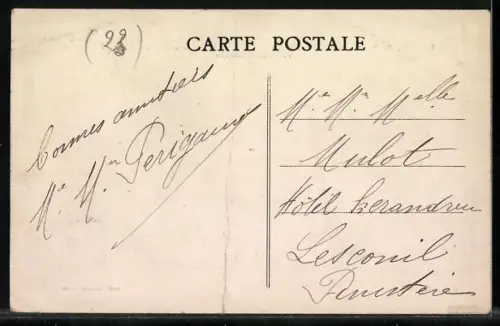 (22)
CARTE POSTALE
Bonnes amitiés
Mr Mme Perigault
Mr Mme Melle
Mulot
Hôtel Lerandreu
Lesconil
Finistère